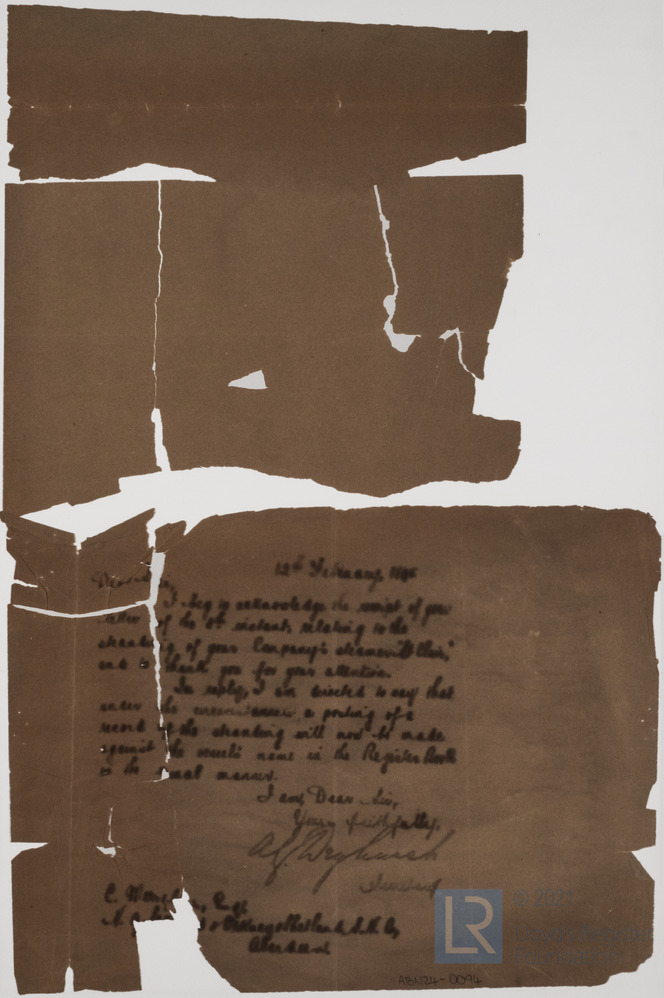 12th February, 18
Dear Sir,
I beg to acknowledge the receipt of your
letter of the instant, relating to the
stranding of your Company's steamer "St Clair,"
and to thank you for your attention.
In reply, I am directed to say that
under the circumstances a posting of a
record of the stranding will now be made
against the vessel's name in the Register Book
in the usual manner.
I am, Dear Sir,
Yours faithfully,
Secretary
C. Esqr,
N. of Orkney & Shetland S.N. Co
Aberdeen
ABN24-0094
LR
© 2021
Lloyd's Register
Foundation